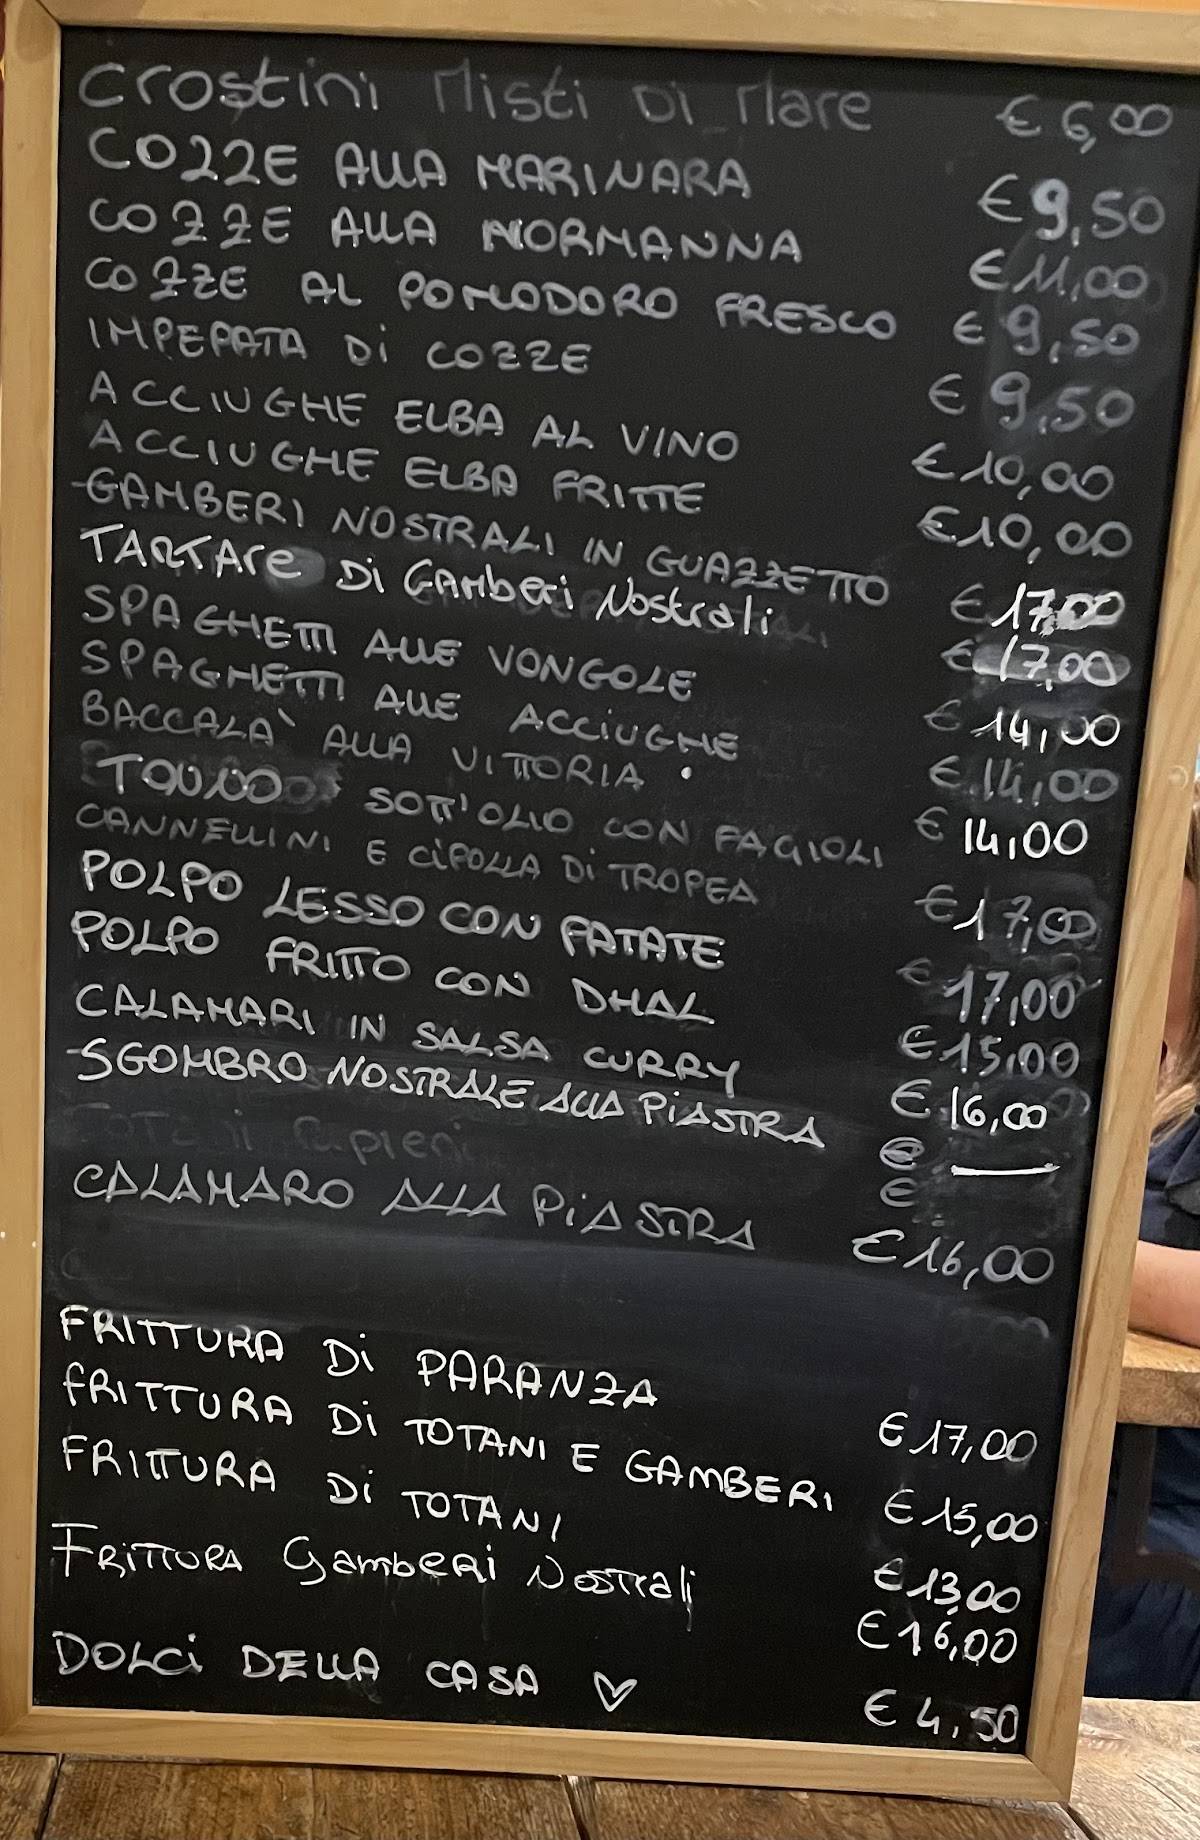 Crostini Misti Di Mare € 6,00
COZZE ALLA MARINARA € 9,50
COZZE ALLA NORMANNA € 11,00
COZZE AL POMODORO FRESCO € 9,50
IMPEPATA Di COZZE € 9,50
ACCIUGHE ELBA AL VINO € 10,00
ACCIUGHE ELBA FRITTE € 10,00
-GAMBERI NOSTRALI IN GUAZZETTO € 17,00
TARTARe Di GAmberi Nostrali € 17,00
SPAGHETTI ALLE VONGOLE € 14,00
SPAGHETTI ALLE ACCIUGHE € 14,00
BACCALA' ALLA VITTORIA • € 14,00
TONNO SOTT'OLIO CON FAGIOLI
CANNELLINI E CiPOLLA Di TROPEA € 17,00
POLPO LESSO CON PATATE € 17,00
POLPO FRITTO CON DHAL € 15,00
CALAMARI IN SALSA CURRY € 16,00
-SGOMBRO NOSTRALE ALLA PiASTRA € —
TOTani Ripieni €
CALAMARO ALLA PiASTRA € 16,00
FRITTURA Di PARANZA € 17,00
FRITTURA Di TOTANI E GAMBERI € 15,00
FRITTURA Di TOTANI € 13,00
FRITTURA Gamberi Nostrali € 16,00
DOLCi DELLA CASA ♡ € 4,50